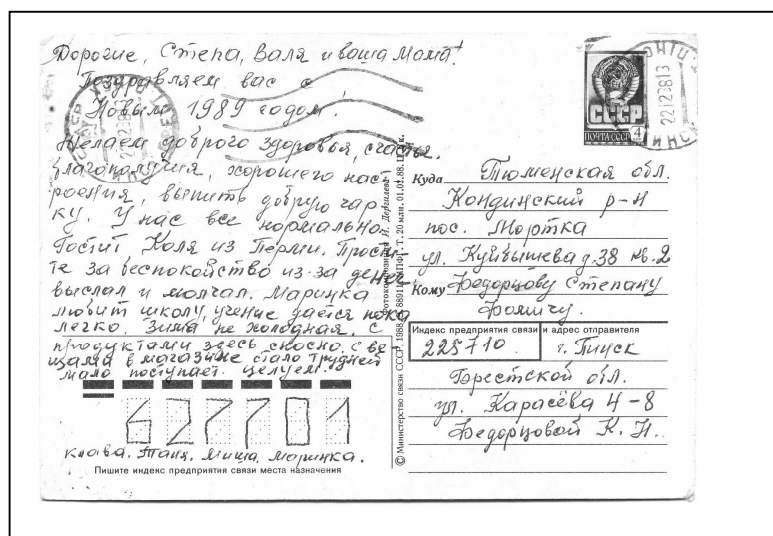 Дорогие, Степа, Валя и ваша Мама!
Поздравляем вас с
Новым 1989 годом!
Желаем доброго здоровья, счастья.
благополучия, хорошего нас-
роения, выпить добрую чар-
ку. У нас все нормально.
Гостит Коля из Перми. Прости-
те за беспокойство из-за денег
выслал и молчал. Маринка
любит школу, учение даётся пока
легко. Зима не холодная, с
продуктами здесь сносно, с ве-
щами в магазине стало трудней
мало поступает. Целуем.
627701
Клава. Таня. Миша, Маринка.
Пишите индекс предприятия связи места назначения
© Министерство связи СССР. 1988
Т. 20 млн. 01.02.88. 11 к.
СССР
ПОЧТА СССР 4
ПИНСК
Куда Тюменская обл.
Кондинский р-н
пос. Мортка
ул. Куйбышева д.38 кв.2
Кому Федорцову Степану
Фомичу.
Индекс предприятия связи и адрес отправителя
225710 г. Пинск
Брестской обл.
ул. Карасёва 4-8
Федорцовой К. Н.